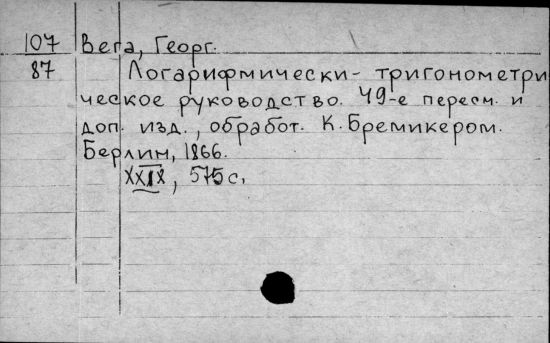 107 Вега, Георг.
87 Логарифмически-тригонометри
ческое руководство. 49-е пересм. и
доп. изд., обработ. К. Бремикером.
Берлин, 1866.
XXIX, 575 с.